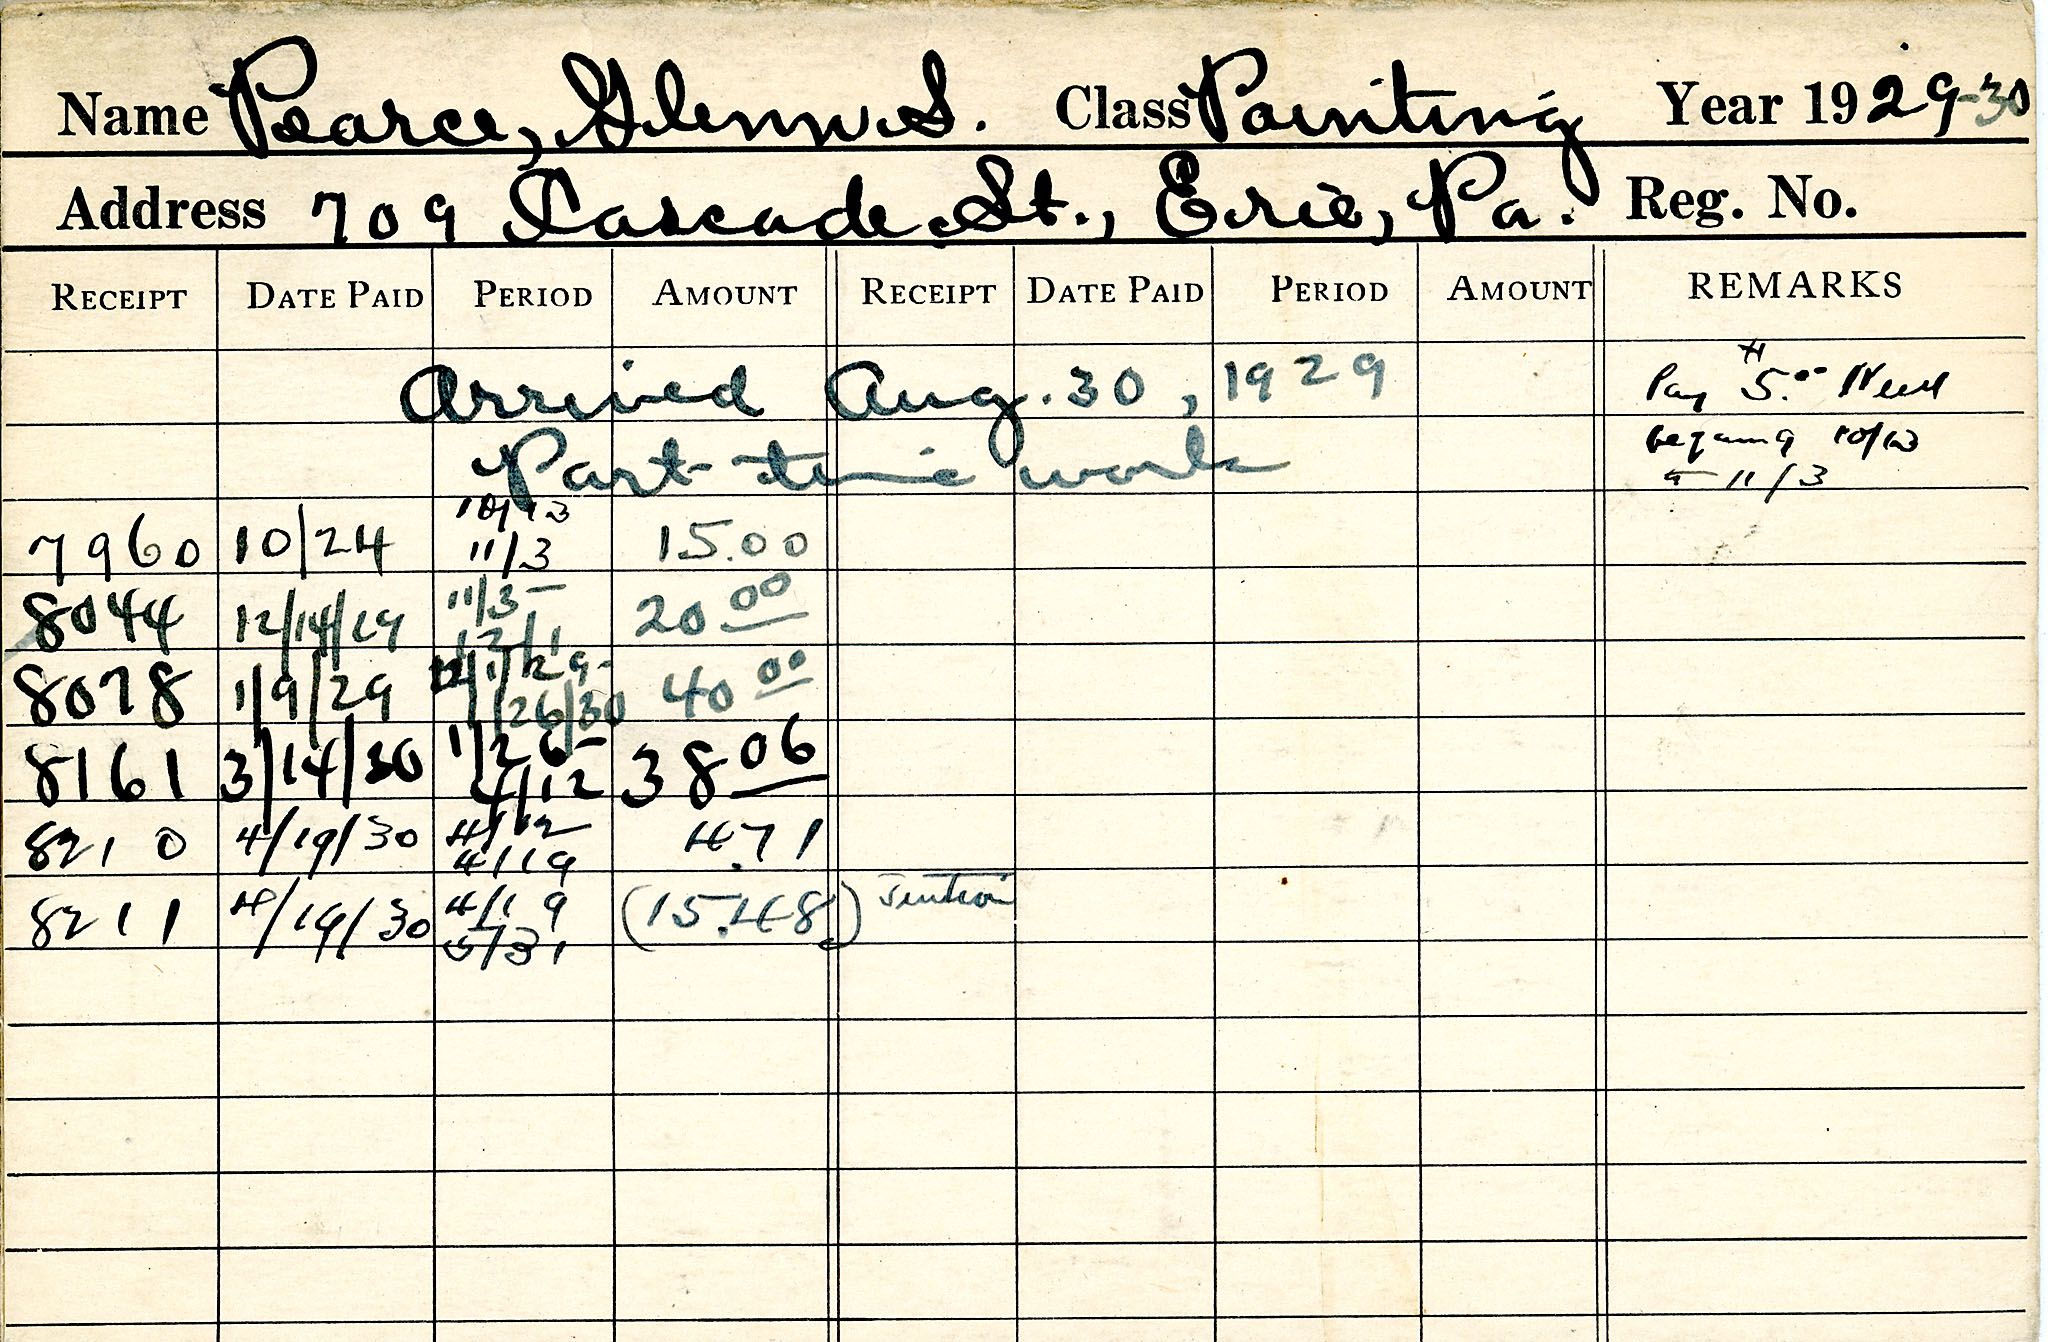 Name Pearce, Glenn S. Class Painting Year 1929-30
Address 709 Cascade St., Erie, Pa. Reg. No.
RECEIPT DATE PAID PERIOD AMOUNT RECEIPT DATE PAID PERIOD AMOUNT REMARKS
Arrived Aug. 30, 1929
Part time work
Pay $5.00 Week
10/13
11/3
10/13
7960 10/24 11/3 15.00
8044 12/14/29 11/3- 20 00
12/1
8078 1/9/29 12/1/29- 40 00
1/26/30
8161 3/14/30 1/26- 38 06
4/12
8210 4/19/30 4/12 4.71
4/19
8211 4/19/30 4/19 (15.48) Tuition
5/31